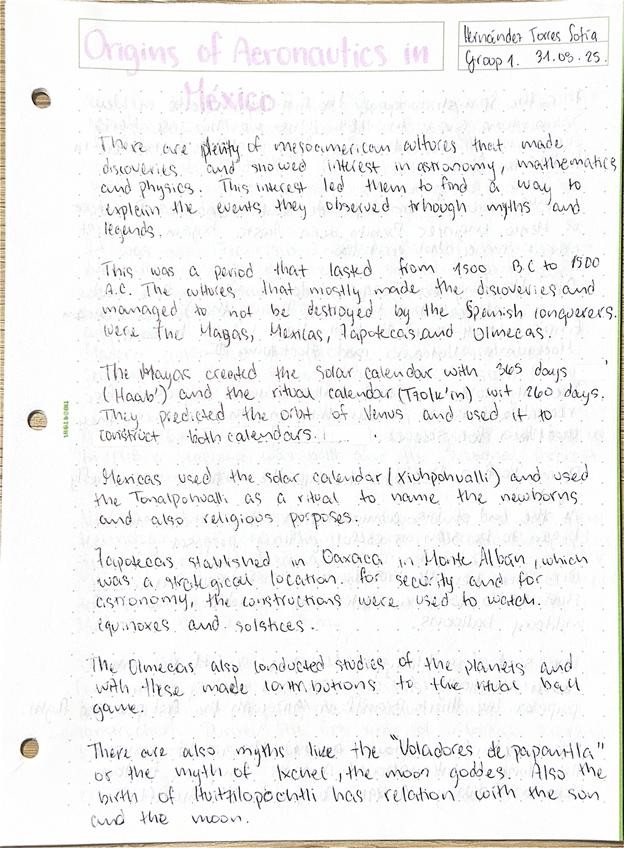 Origins of Aeronautics in
México
Hernández Torres Sofía
Group 1. 31.03.25.
There are plenty of mesoamerican cultures that made
discoveries and showed interest in astronomy, mathematics
and physics. This interest led them to find a way to
explain the events they observed trhough myths and
legends.
This was a period that lasted from 1500 B.C to 1500
A.C. The cultures that mostly made the discoveries and
managed to not be destroyed by the Spanish conquerers.
were The Mayas, Mexicas, Zapotecas and Olmecas.
The Mayas created the solar calendar with 365 days
(Haab') and the ritual calendar (Tzolk'in) wit 260 days.
They predicted the orbit of Venus and used it to
construct both calendars.
Mexicas used the solar calendar (Xiuhpohualli) and used
the Tonalpohualli as a ritual to name the newborns
and also religious porposes.
Zapotecas stablished in Oaxaca in Monte Albán, which
was a strategical location for security and for
astronomy, the constructions were used to watch.
equinoxes and solstices.
The Olmecas also conducted studies of the planets and
with these made contributions to the ritual ball
game.
There are also myths like the "Voladores de papantla"
or the myth of Ixchel, the moon goddes. Also the
birth of Huitzilopochtli has relation with the son
and the moon.